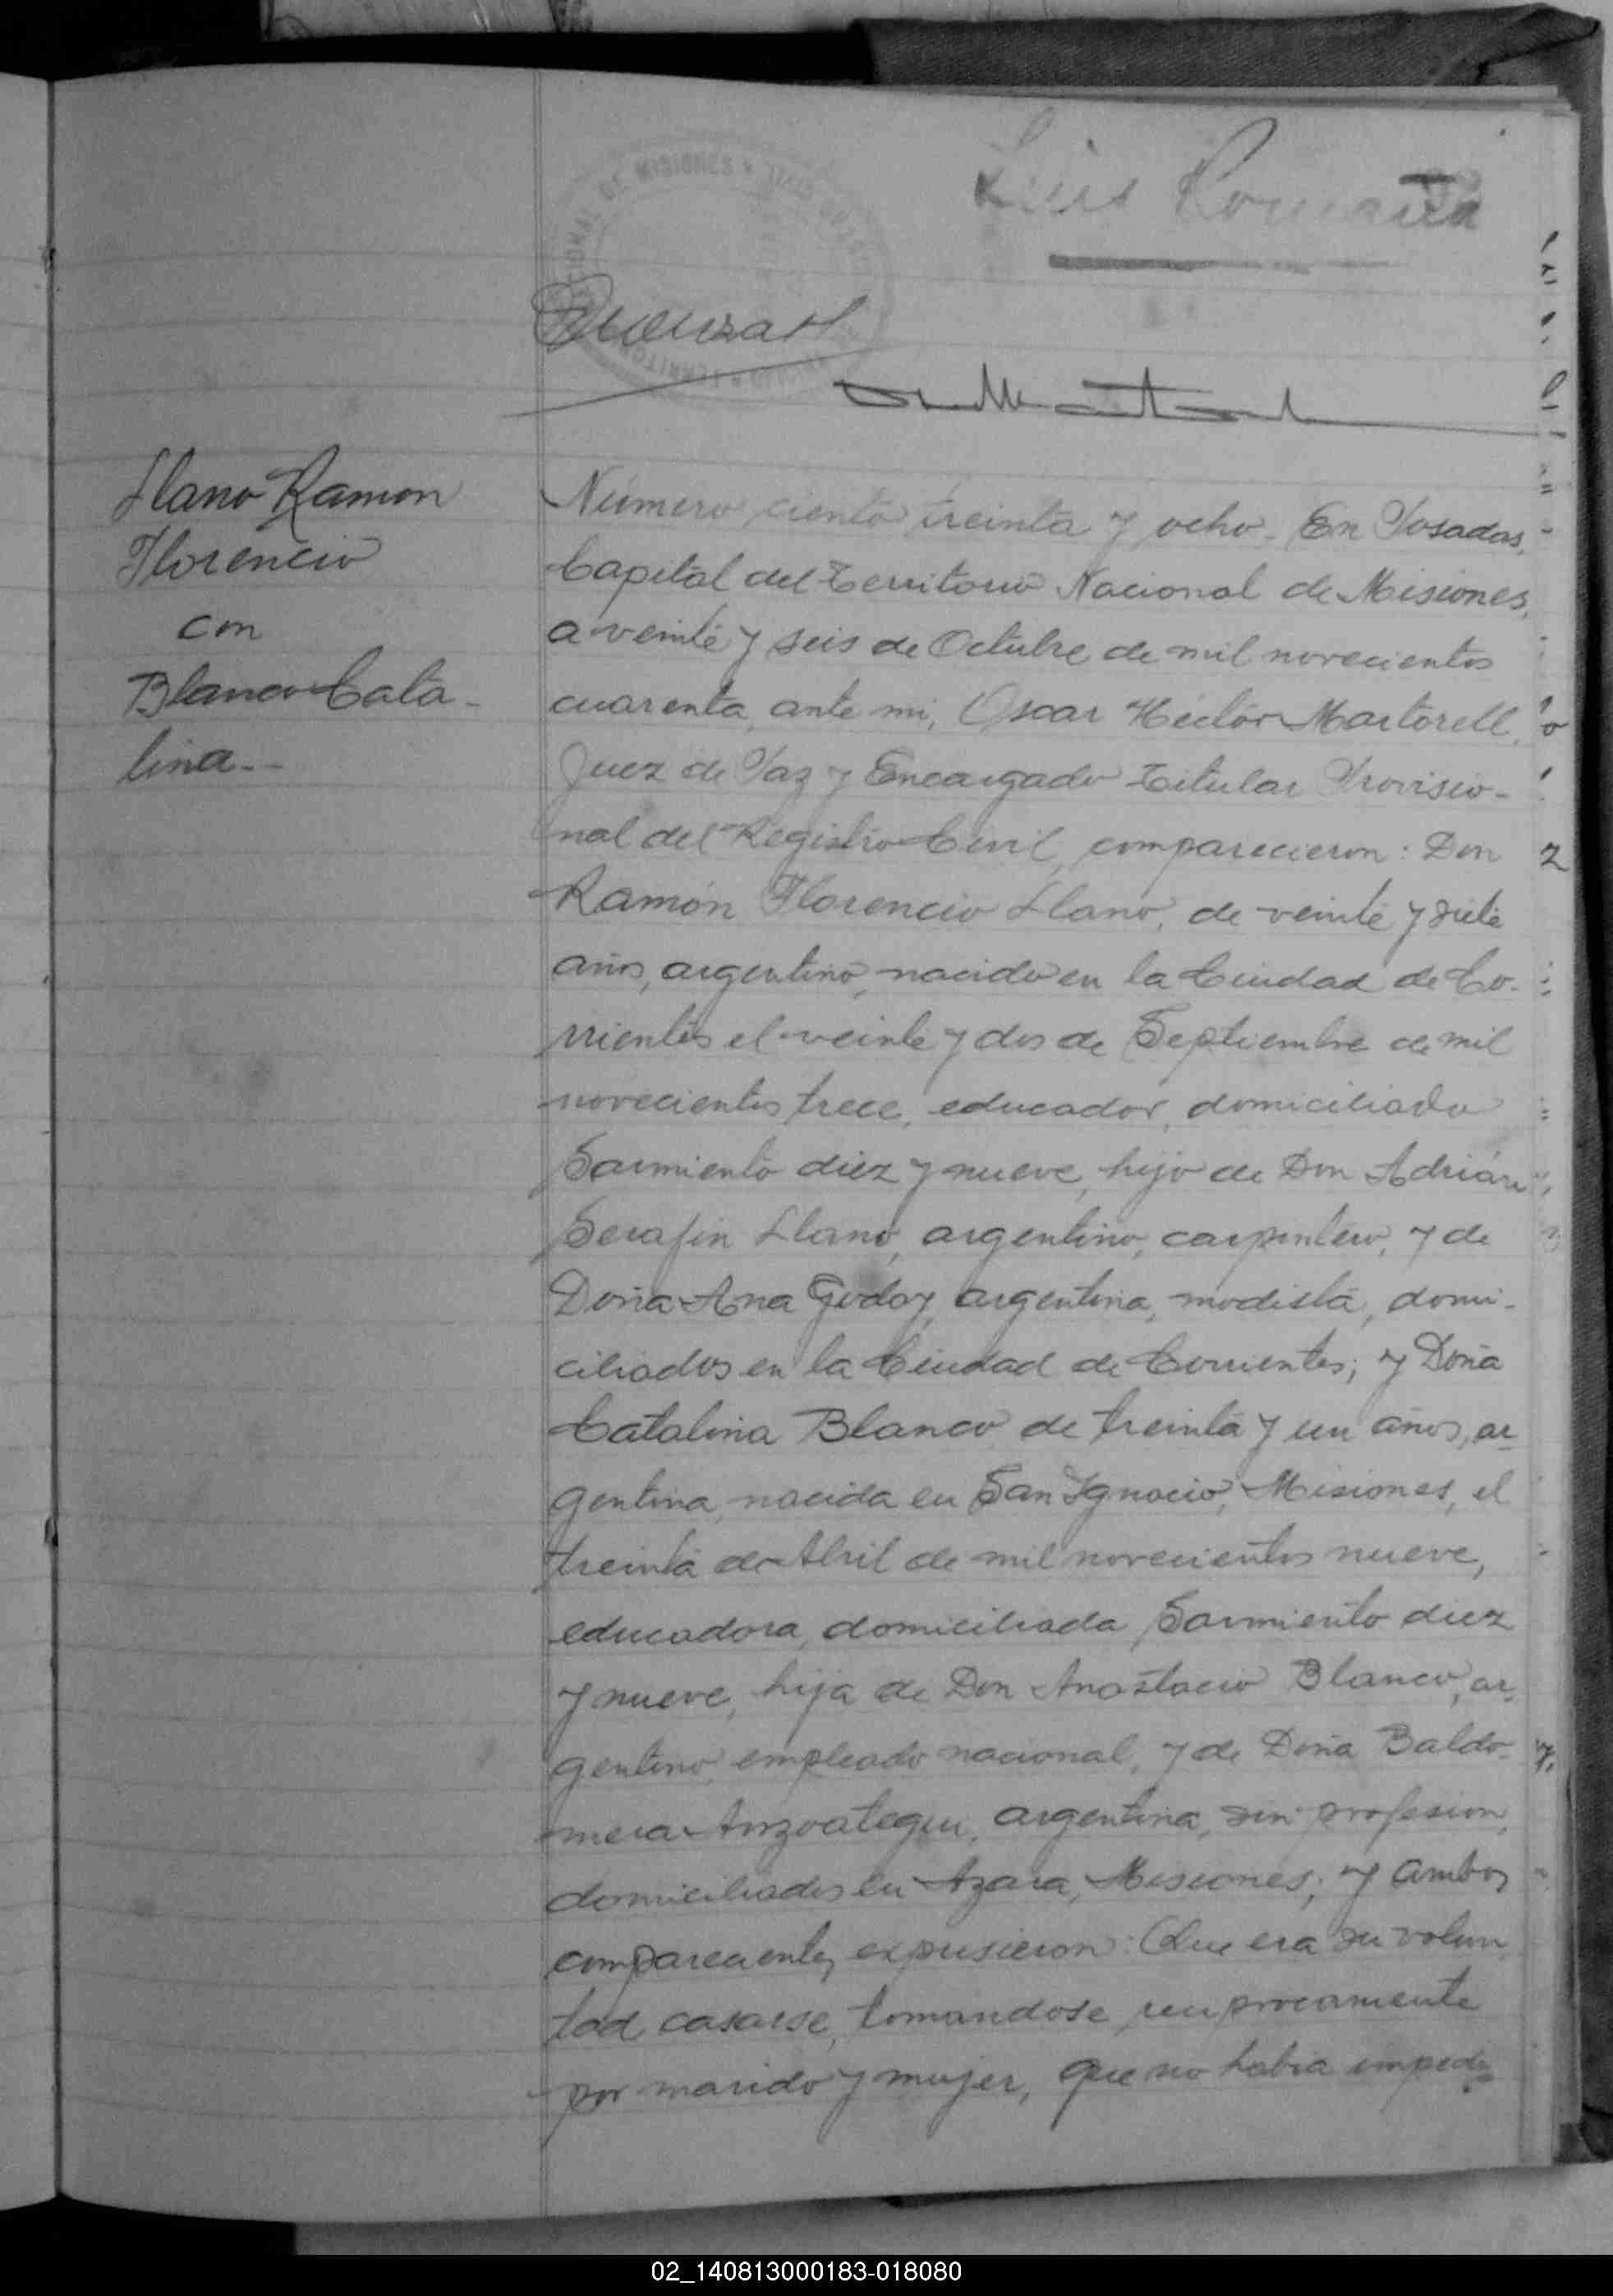 Luis Romaña
DE MISIONES
Llano Ramon
Florencio
con
Blanco Cata-
lina--
Número ciento treinta y ocho. En Posadas,
Capital del Territorio Nacional de Misiones,
a veinte y seis de Octubre de mil novecientos
cuarenta, ante mi, Oscar Héctor Martorell,
Juez de Paz y Encargado Titular Provisio-
nal del Registro Civil, comparecieron: Don
Ramón Florencio Llano, de veinte y siete
años, argentino, nacido en la Ciudad de Co-
rrientes el veinte y dos de Septiembre de mil
novecientos trece, educador, domiciliado
Sarmiento diez y nueve, hijo de Don Adrián
Serafin Llano, argentino, carpintero, y de
Doña Ana Godoy, argentina, modista, domi-
ciliados en la Ciudad de Corrientes; y Doña
Catalina Blanco de treinta y un años, ar-
gentina, nacida en San Ignacio, Misiones, el
treinta de Abril de mil novecientos nueve,
educadora, domiciliada Sarmiento diez
y nueve, hija de Don Anastacio Blanco, ar-
gentino, empleado nacional, y de Doña Baldo-
mera Anzoategui, argentina, sin profesion,
domiciliados en Azara, Misiones; y ambos
comparecientes expusieron: Que era su volun
tad casarse, tomandose reciprocamente
por marido y mujer, que no habia impedi-
02_140813000183-018080